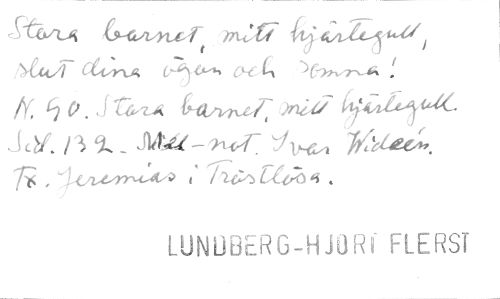 Stora barnet, mitt hjärtegull,
slut dina ögon och somna!
N. 90. Stora barnet, mitt hjärtegull.
Sid. 132 - -not. Ivar Widéen.
Tx. Jeremias i Tröstlösa.
LUNDBERG-HJORT FLERST